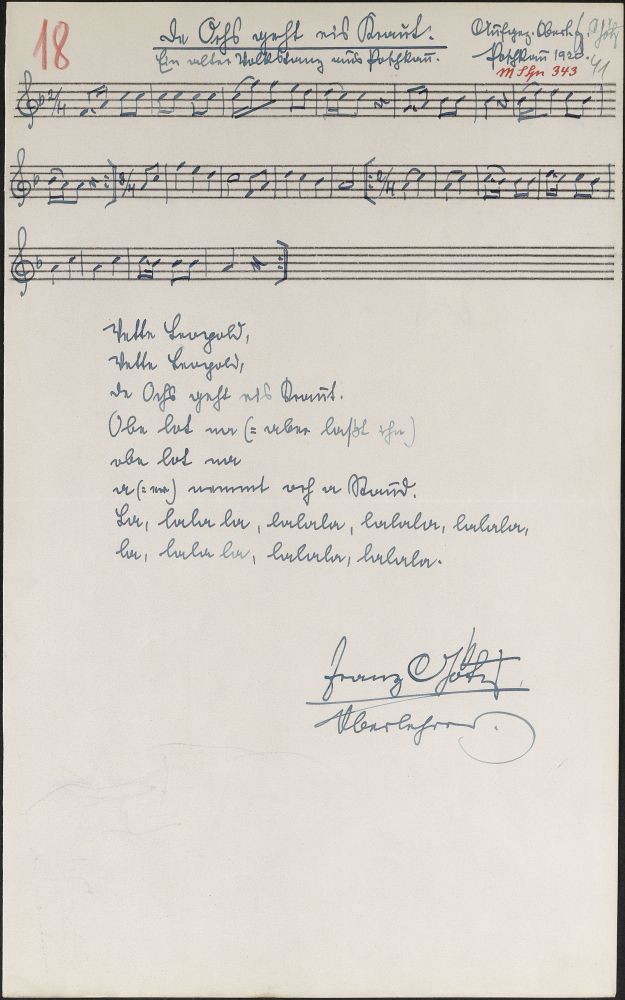 18
De Ochs geht eis Kraut:
Ein alter Volkstanz aus Poschkau.
Aufgez. Oberl. Fr. Götz
Poschkau 1920.
41
M Shn 343
2/4
3/4 2/4
Vette Leopold,
Vette Leopold,
de Ochs geht eis Kraut.
Obe lot na (= aber laßt ihn)
obe lot na
a (= er) nemmt och a Staud.
La, lala la, lalala, lalala, lalala,
la, lala la, lalala, lalala.
Franz Götz,
Oberlehrer.